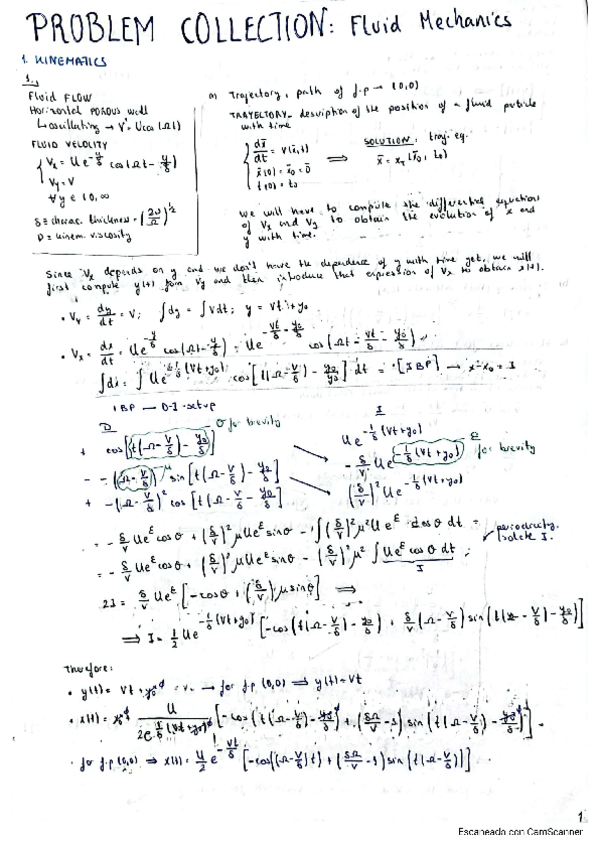 PROBLEM COLLECTION: Fluid Mechanics
1. KINEMATICS
1.
FLUID FLOW
Horizontal POROUS wall
↳ oscillating → V = U cos(Ωt)
FLUID VELOCITY
{ Vx = U e^(-y/δ) cos(Ωt - y/δ)
Vy = V
∀y ∈ [0,∞
δ ≡ charac. thickness = (2ν/Ω)^(1/2)
ν ≡ kinem. viscosity
a) Trajectory, path of f.p → (0,0)
TRAYECTORY - description of the position of a fluid particle
with time
{ dx̄/dt = V(x̄,t)
x̄(0) = x̄0 = 0̄
t(0) = t0
⟹
SOLUTION: traj. eq.
x̄ = xT(x̄0, t0)
We will have to compute the differential equations
of Vx and Vy to obtain the evolution of x and
y with time.
Since Vx depends on y and we don't have the dependence of y with time yet, we will
first compute y(t) from Vy and then introduce that expression of Vx to obtain x(t).
• Vy = dy/dt = V; ∫dy = ∫Vdt; y = Vt + y0
• Vx = dx/dt = U e^(-y/δ) cos(Ωt - y/δ) = U e^(-Vt/δ - y0/δ) cos(Ωt - Vt/δ - y0/δ)
∫dx = ∫U e^(-1/δ (Vt+y0)) cos[t(Ω - V/δ) - y0/δ] dt = [IBP] → x - x0 = I
IBP → D-I setup
D
θ for brevity
I
+ cos[t(Ω - V/δ) - y0/δ]
U e^(-1/δ (Vt+y0))
- -(Ω - V/δ) μ sin[t(Ω - V/δ) - y0/δ]
-δ/V U e^(-1/δ (Vt+y0)) for brevity
+ -(Ω - V/δ)² cos[t(Ω - V/δ - y0/δ]
(δ/V)² U e^(-1/δ (Vt+y0))
= -δ/V U e^ε cosθ + (δ/V)² μ U e^ε sinθ - ∫(δ/V)² μ² U e^ε cosθ dt =
periodicity.
Isolate I.
= -δ/V U e^ε cosθ + (δ/V)² μ U e^ε sinθ - (δ/V)² μ² ∫U e^ε cosθ dt
I
2I = δ/V U e^ε [-cosθ + (δ/V) μ sinθ] ⟹
⟹ I = 1/2 U e^(-1/δ (Vt+y0)) [-cos(t(Ω - V/δ) - y0/δ) + δ/V (Ω - V/δ) sin(t(Ω - V/δ) - y0/δ)]
Therefore:
• y(t) = Vt + y0 → for f.p (0,0) ⟹ y(t) = Vt
• x(t) = U / 2e^(1/δ (Vt+y0)) [-cos(t(Ω - V/δ) - y0/δ) + (δΩ/V - 1) sin(t(Ω - V/δ) - y0/δ)]
• for f.p (0,0) ⟹ x(t) = U/2 e^(-Vt/δ) [-cos((Ω - V/δ)t) + (δΩ/V - 1) sin(t(Ω - V/δ))]
1
Escaneado con CamScanner